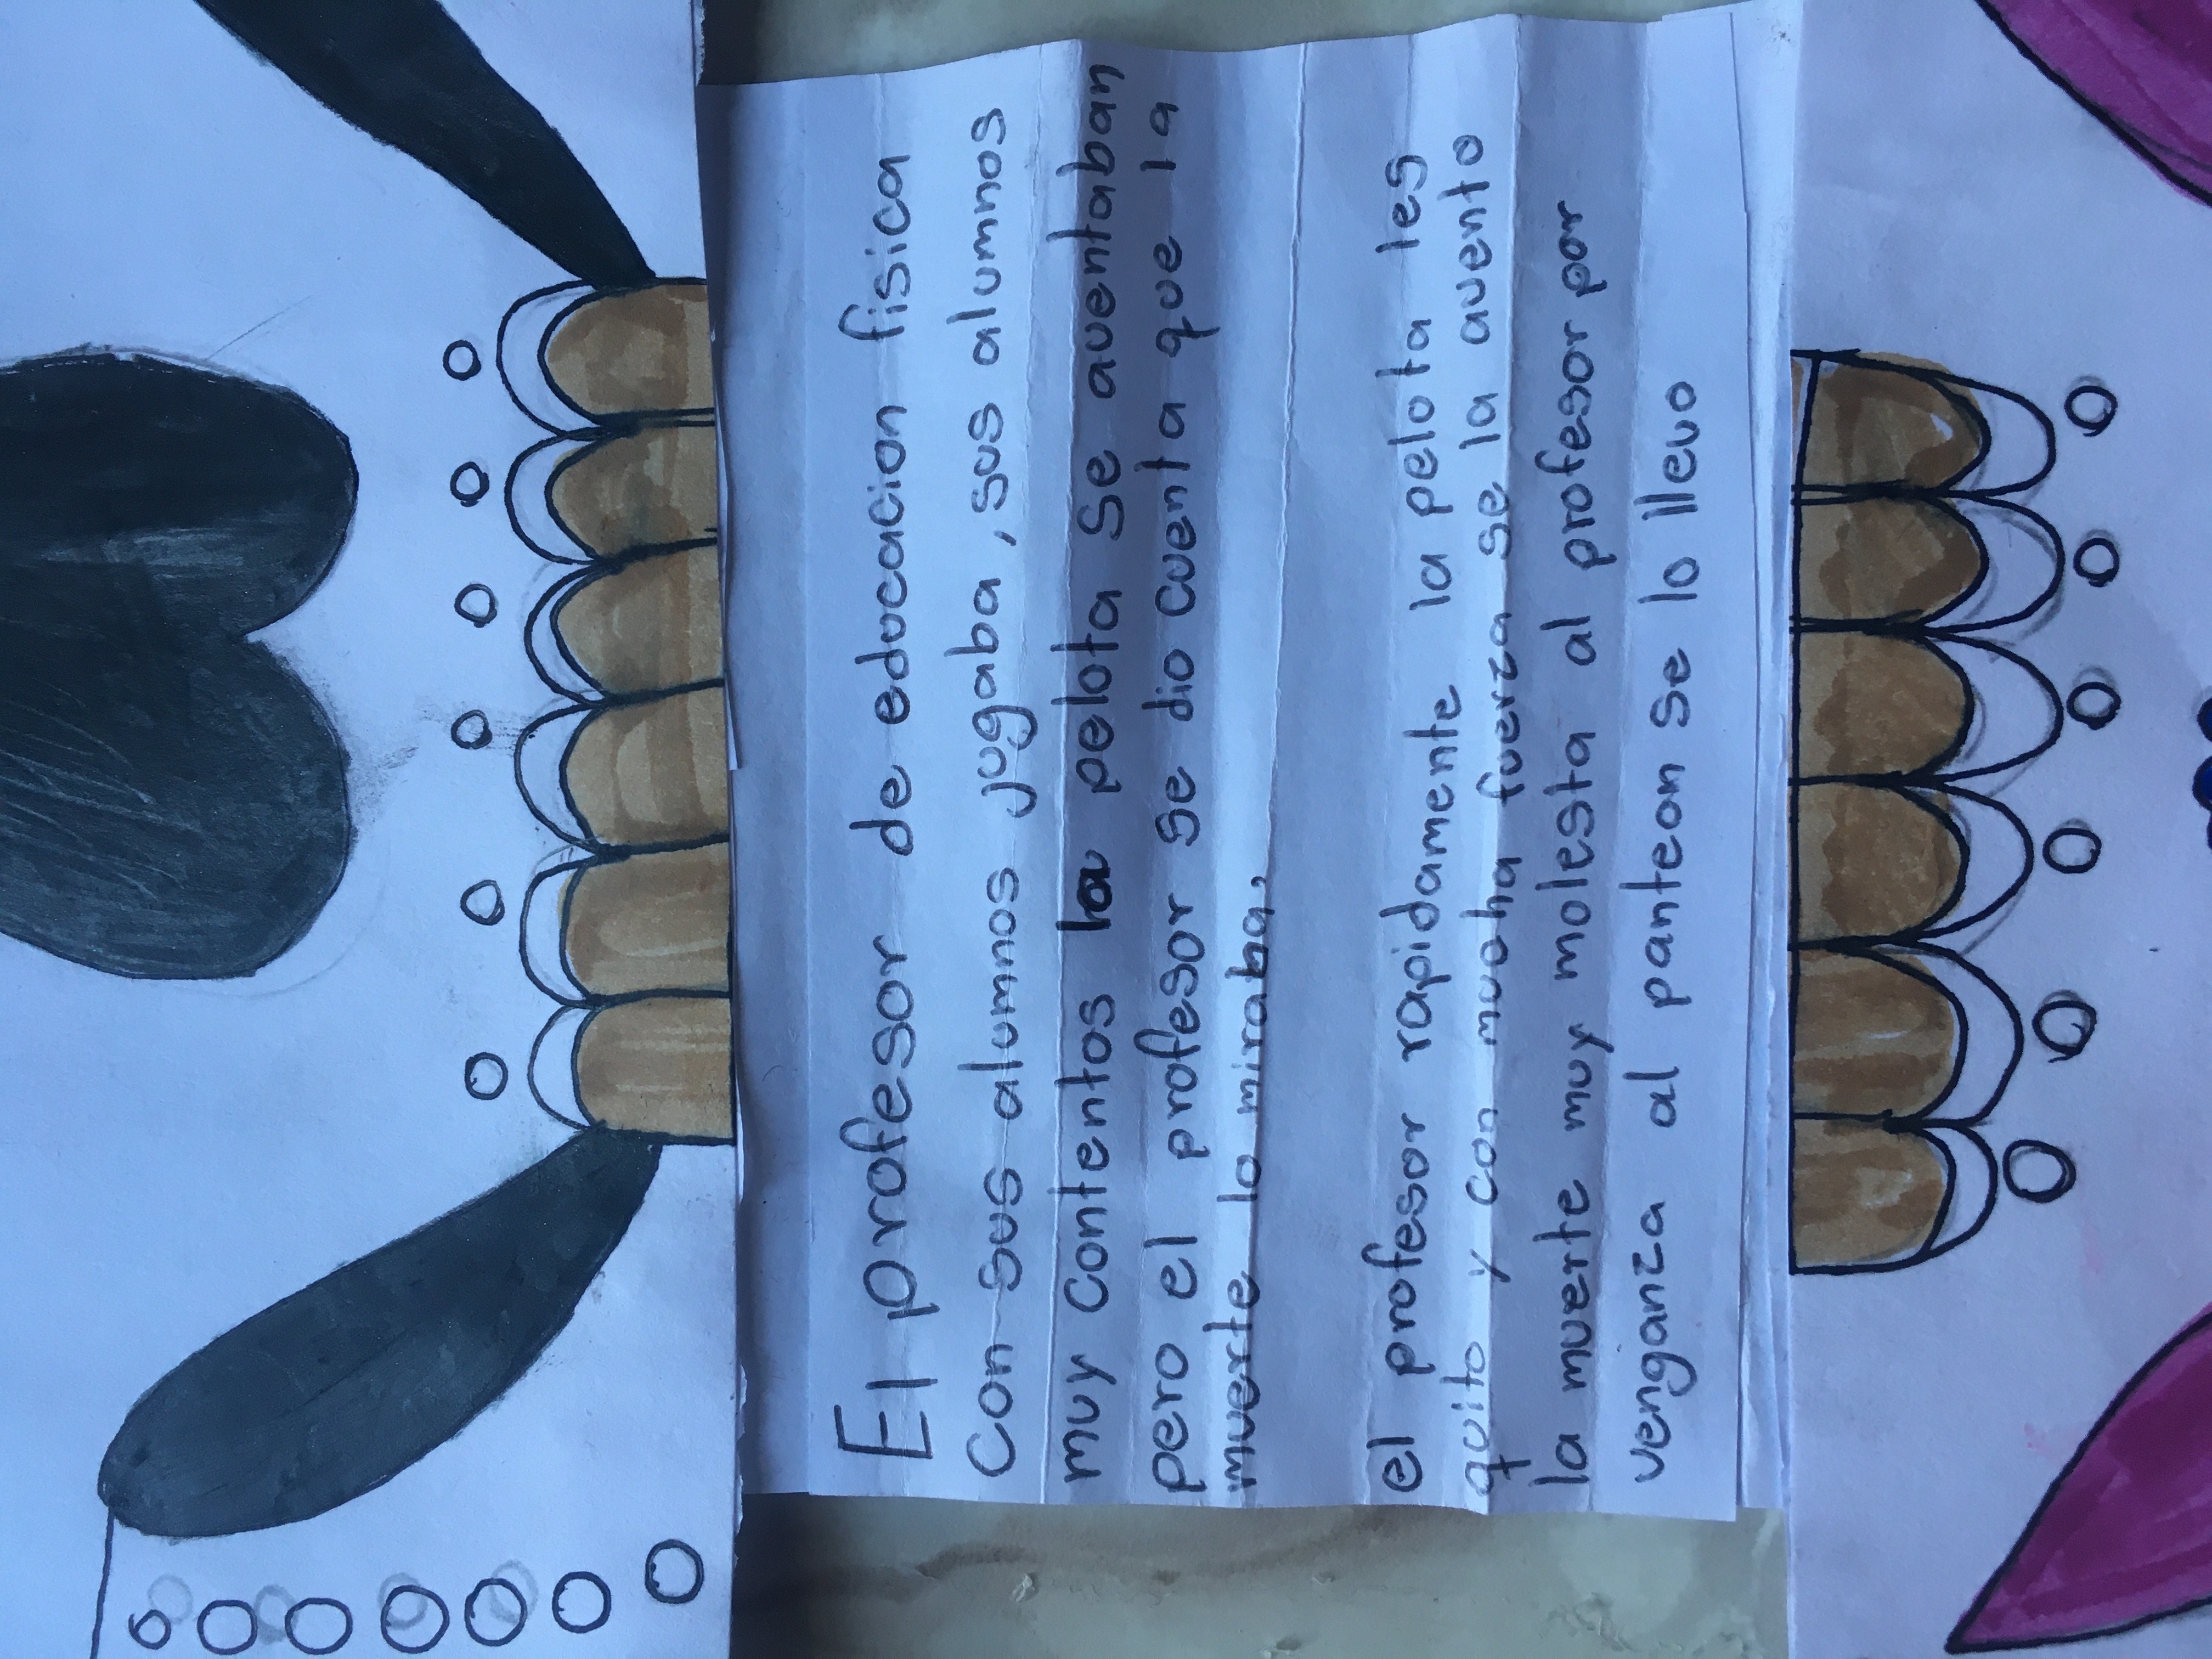 El profesor de educacion fisica
Con sus alumnos jugaba, sus alumnos
muy contentos la pelota se aventaban
pero el profesor se dio cuenta que la
muerte lo miraba,
el profesor rapidamente la pelota les
quito y con mucha fuerza se la avento
la muerte muy molesta al profesor por
venganza al panteon se lo llevo